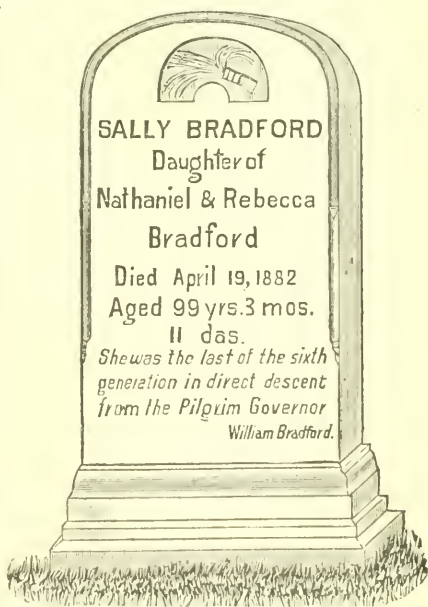 SALLY BRADFORD
Daughter of
Nathaniel & Rebecca
Bradford
Died April 19, 1882
Aged 99 yrs. 3 mos.
11 das.
She was the last of the sixth
generation in direct descent
from the Pilgrim Governor
William Bradford.